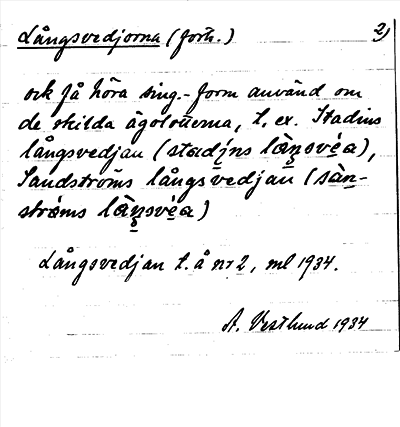 Långsvedjorna (forts.) 2)
ock få höra sing.-form använd om
de skilda ägolotterna, t. ex. Stadins
långsvedjan (stadi̯ns làn̥svéa),
Sandströms långsvedjan (sàn-
stráms làn̥svéa)
Långsvedjan t. å nr 2, ml 1934.
A. Vestlund 1934